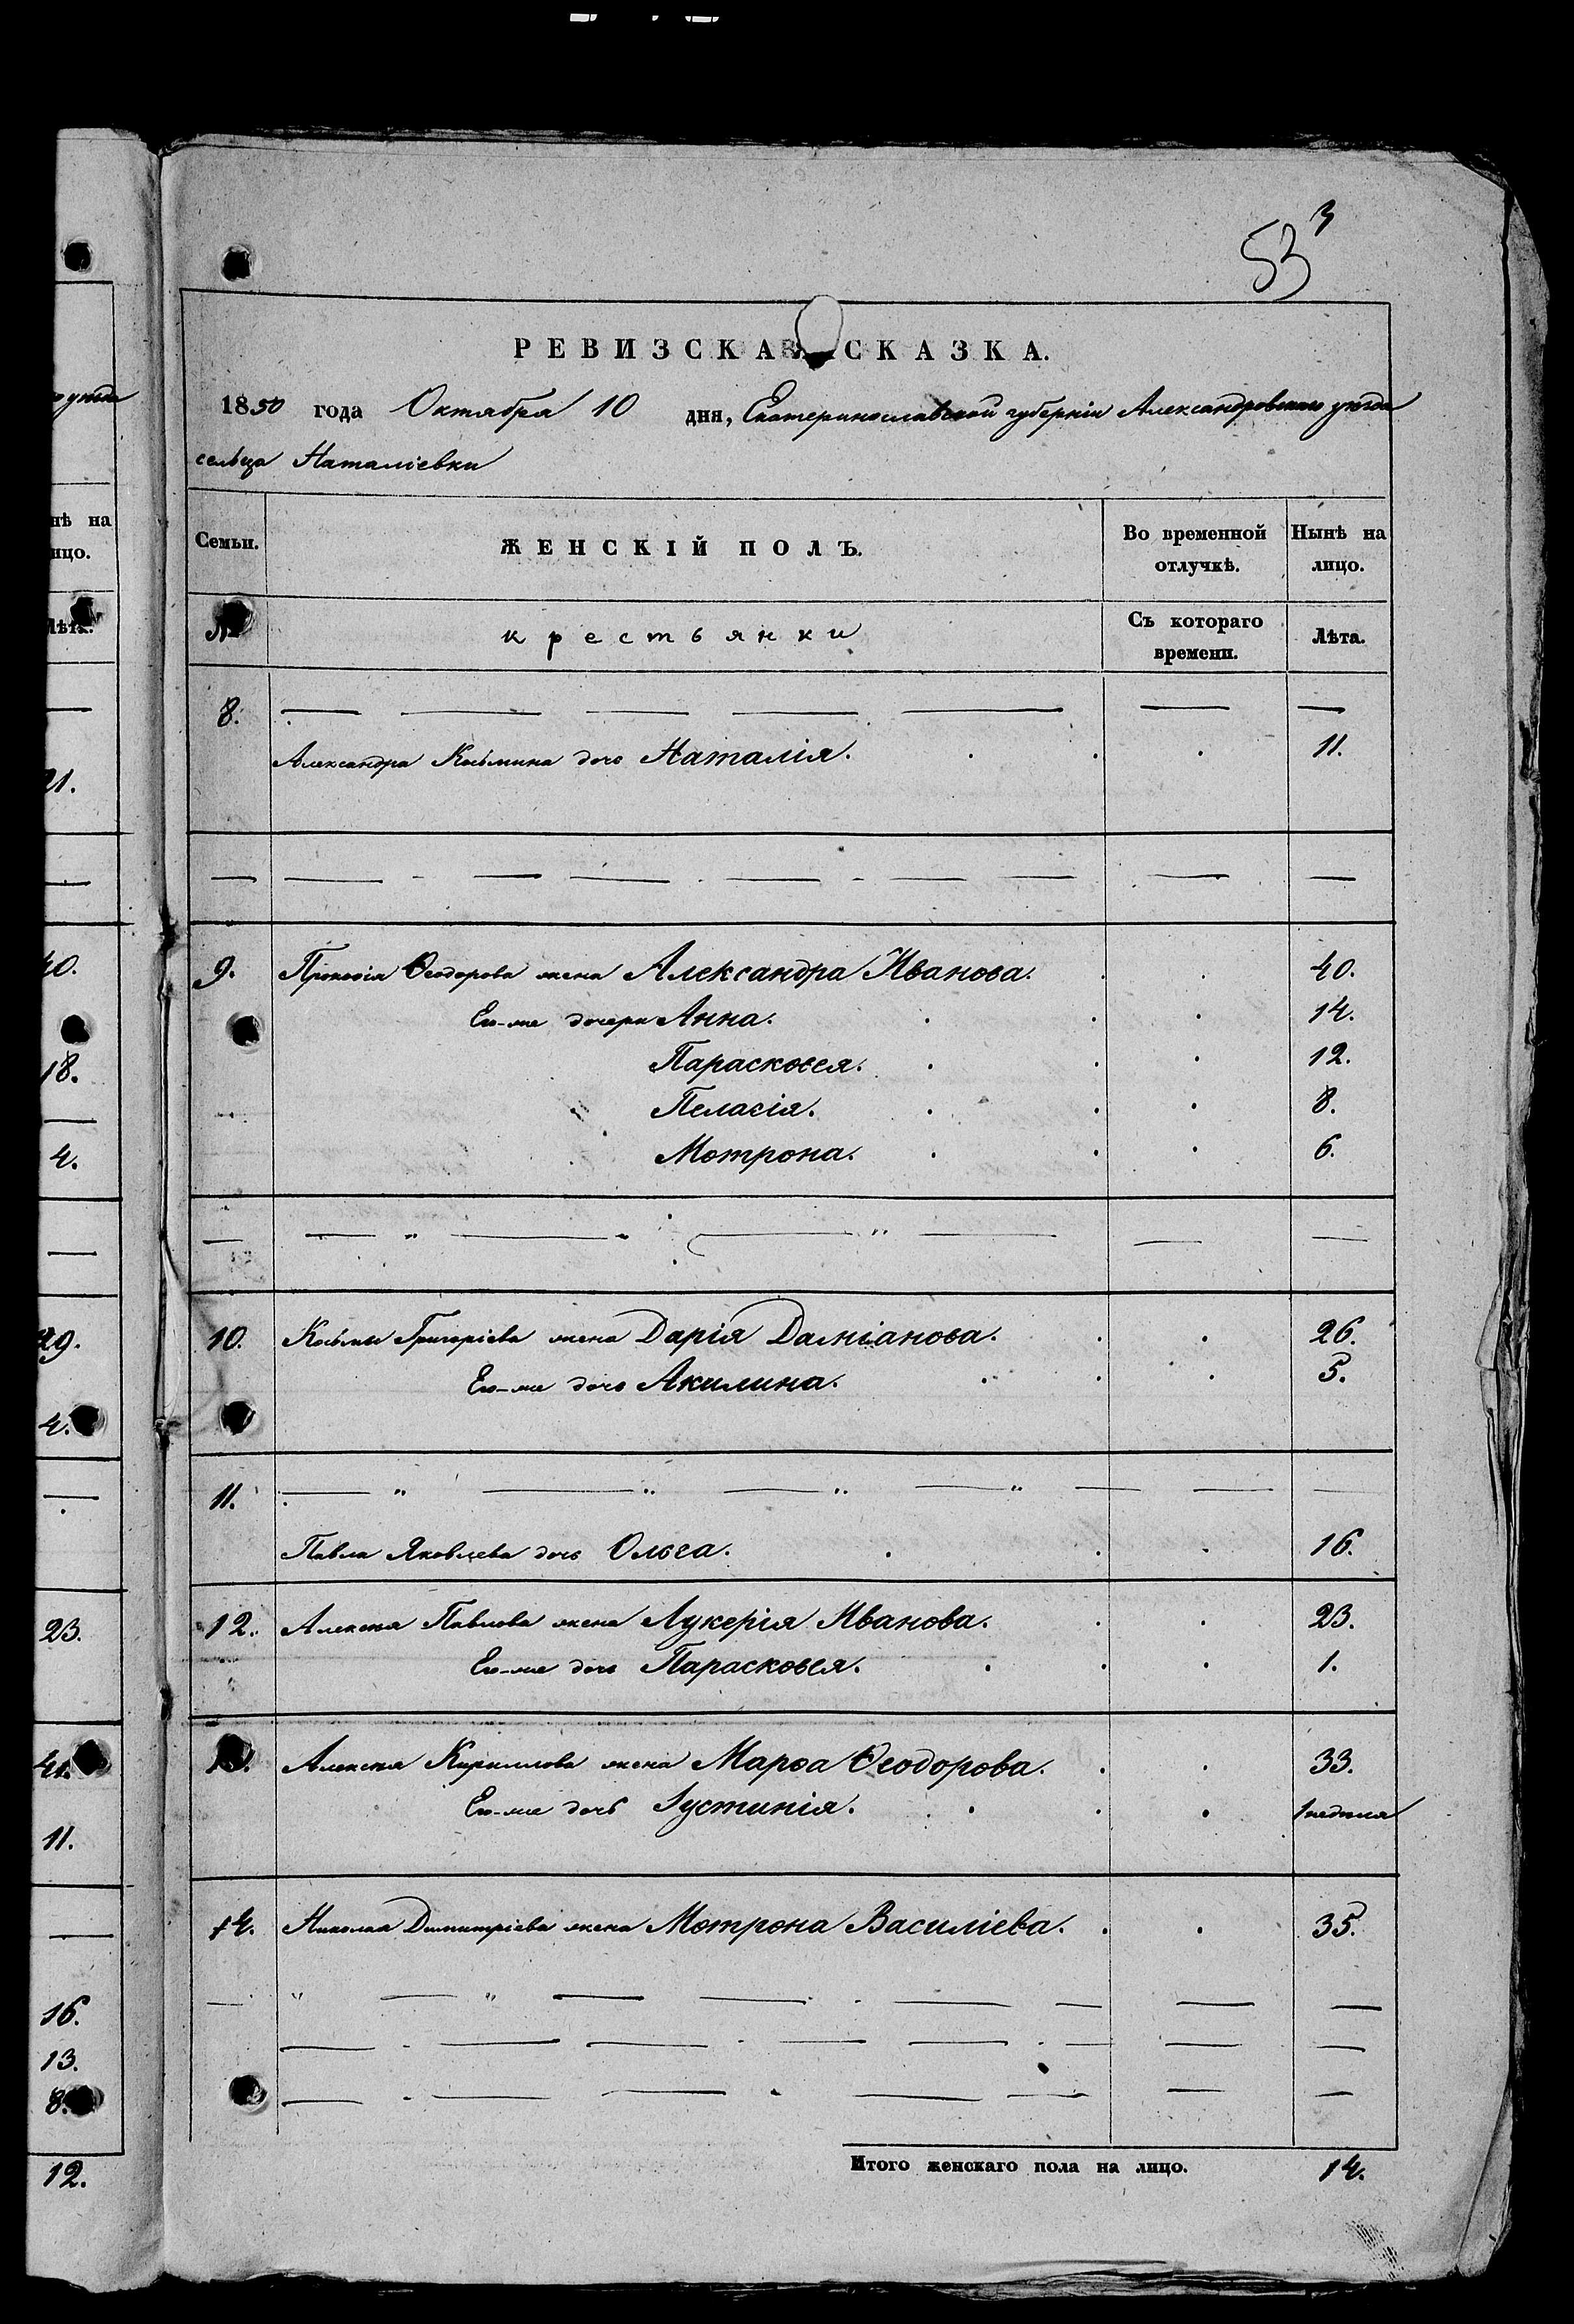 3
53
РЕВИЗСКАЯ СКАЗКА.
1850 года Октября 10 дня, Екатеринославской губерніи Александровскаго уѣзда
сельца Наталіевки
Семьи. ЖЕНСКІЙ ПОЛЪ. Во временной отлучкѣ. Нынѣ на лицо.
№ крестьянки Съ котораго времени. Лѣта.
8.
Александра Козьмина дочь Наталія. 11.
9. Прокофія Ѳеодорова жена Александра Иванова. 40.
Его-же дочери Анна. 14.
Парасковья. 12.
Пелагія. 8.
Мотрона. 6.
10. Козьмы Григоріева жена Дарія Даміанова. 26.
Его-же дочь Акилина. 5.
11.
Павла Яковлева дочь Ольга. 16.
12. Алексея Павлова жена Лукерія Иванова. 23.
Его-же дочь Парасковья. 1.
13. Алексея Кириллова жена Марѳа Ѳеодорова. 33.
Его-же дочь Іустинія. 1 недѣля
14. Николая Димитріева жена Мотрона Василіева. 35.
Итого женскаго пола на лицо. 14.
уѣзда
нѣ на
ицо.
Лѣта.
21.
40.
18.
4.
29.
4.
23.
41.
11.
16.
13.
8.
12.